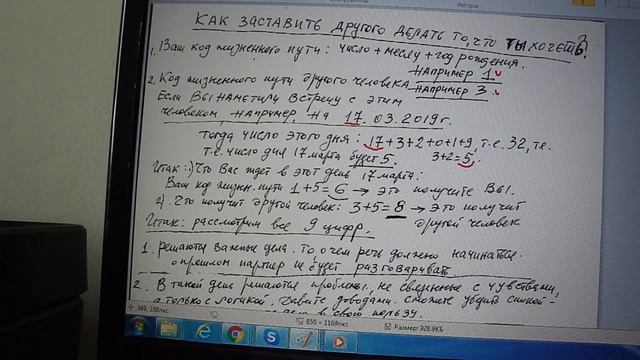 КАК ЗАСТАВИТЬ ДРУГОГО ДЕЛАТЬ ТО, ЧТО ТЫ ХОЧЕШЬ?
1. Ваш код жизненного пути: число + месяц + год рождения.
НАПРИМЕР 1
2. Код жизненного пути другого человека НАПРИМЕР 3
Если ВЫ НАМЕТИЛИ ВСТРЕЧУ С ЭТИМ
человеком, НАПРИМЕР, НА 17.03.2019г.
Тогда число этого дня: 17+3+2+0+1+9, т.е. 32, т.е.
т.е. число дня 17 марта будет 5. 3+2=5,
Итак: 1) Что Вас ждет в этот день 17 марта:
Ваш код жизн. пути 1+5=6 → это получите ВЫ.
2). Что получит другой человек: 3+5=8 → это получит
другой человек
Итак: рассмотрим все 9 цифр.
1. Решаются важные дела. То о чем речь должно начинаться.
о прошлом партнер не будет разговаривать
2. В такой день решаются проблемы, не связанные с чувствами,
а только с логикой. Давите доводами. Сможете убедить спокой-
в свою пользу.
349, 338пкс
850 × 1169пкс
Размер: 928,9КБ
Фигуры